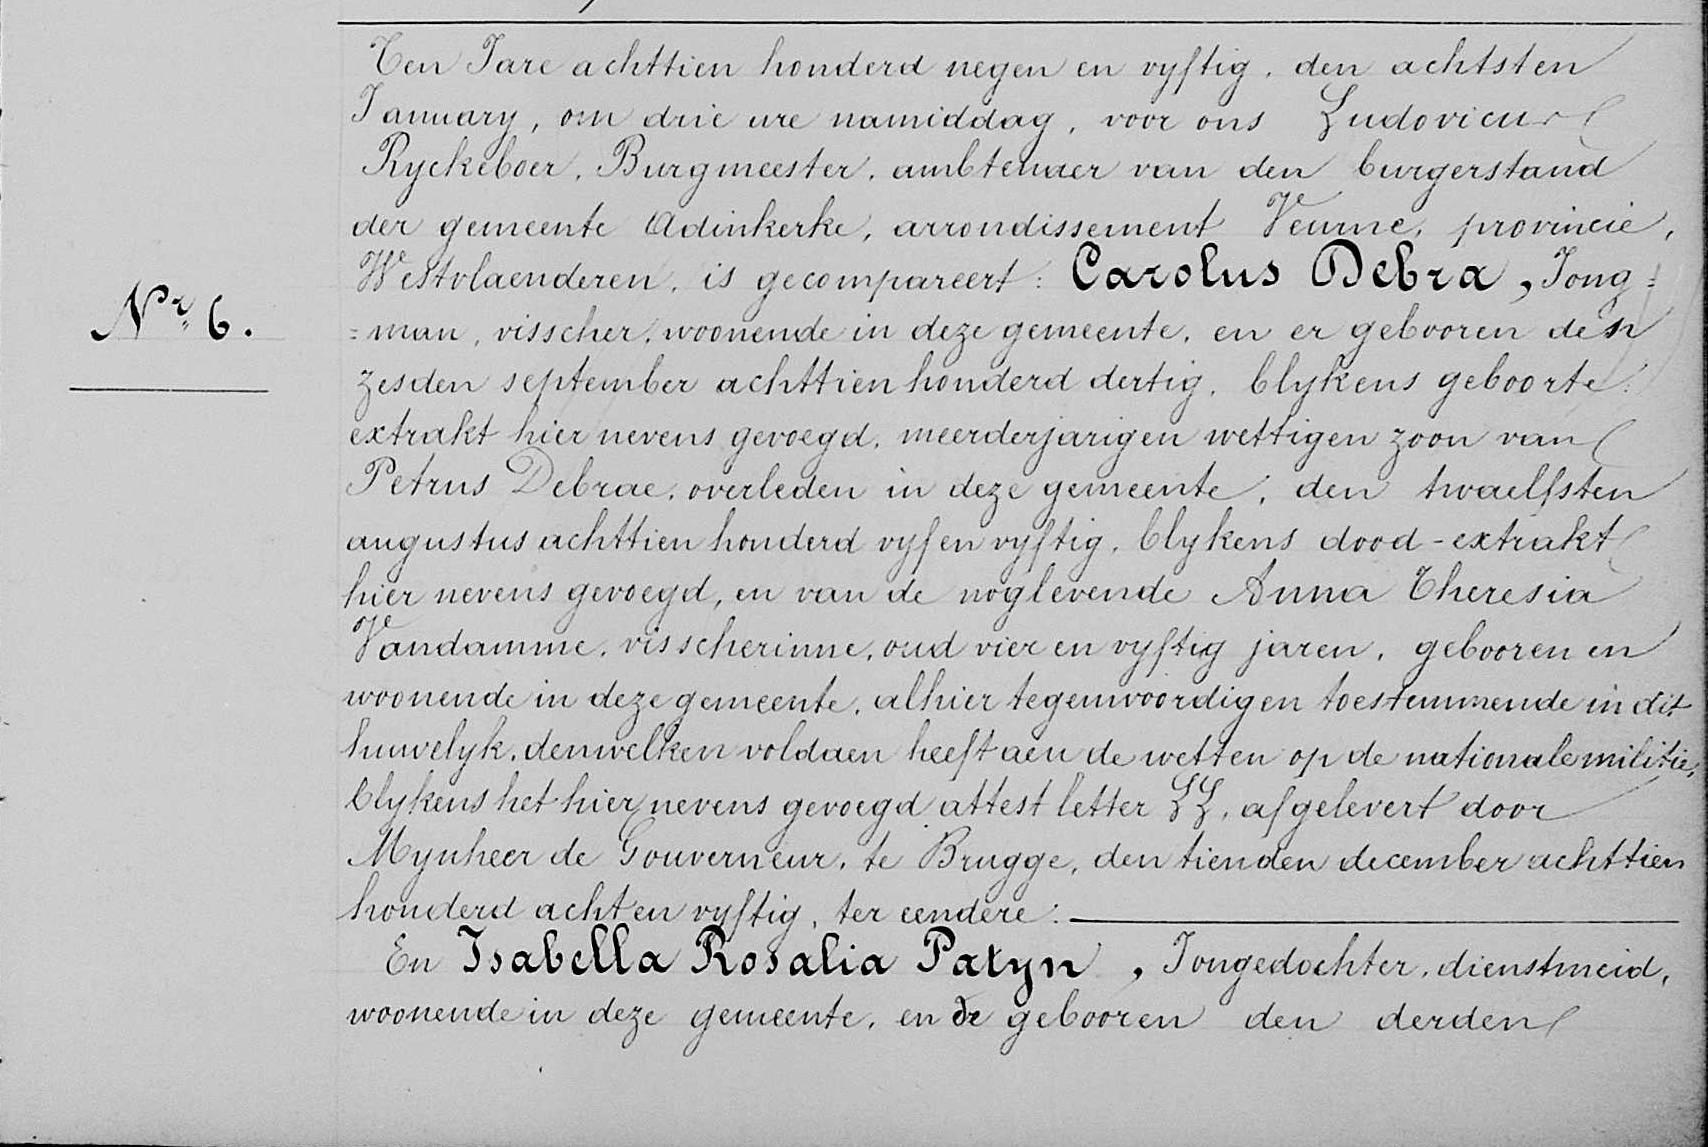 Ten Jare achttien honderd negen en vyftig, den achtsten
January, om drie ure namiddag, voor ons Ludovicus
Ryckeboer, Burgmeester, ambtenaer van den burgerstand
der gemeente Adinkerke, arrondissement Veurne, provincie,
Westvlaenderen, is gecompareert: Carolus Debra, Jong=
Nr. 6.
=man, visscher, woonende in deze gemeente, en er gebooren den
zesden september achttien honderd dertig, blykens geboorte
extrakt hier nevens gevoegd, meerderjarigen wettigen zoon van
Petrus Debrae, overleden in deze gemeente, den twaelfsten
augustus achttien honderd vyf en vyftig, blykens dood-extrakt
hier nevens gevoegd, en van de noglevende Anna Theresia
Vandamme, visscherinne, oud vier en vyftig jaren, gebooren en
woonende in deze gemeente, alhier tegenwoordig en toestemmende in dit
huwelyk, denwelken voldaen heeft aen de wetten op de nationale militie,
blykens het hier nevens gevoegd attest letter LL, afgelevert door
Mynheer de Gouverneur, te Brugge, den tienden december achttien
honderd acht en vyftig, ter eendere:
En Isabella Rosalia Patyn, Jongedochter, dienstmeid,
woonende in deze gemeente, en er gebooren den derden